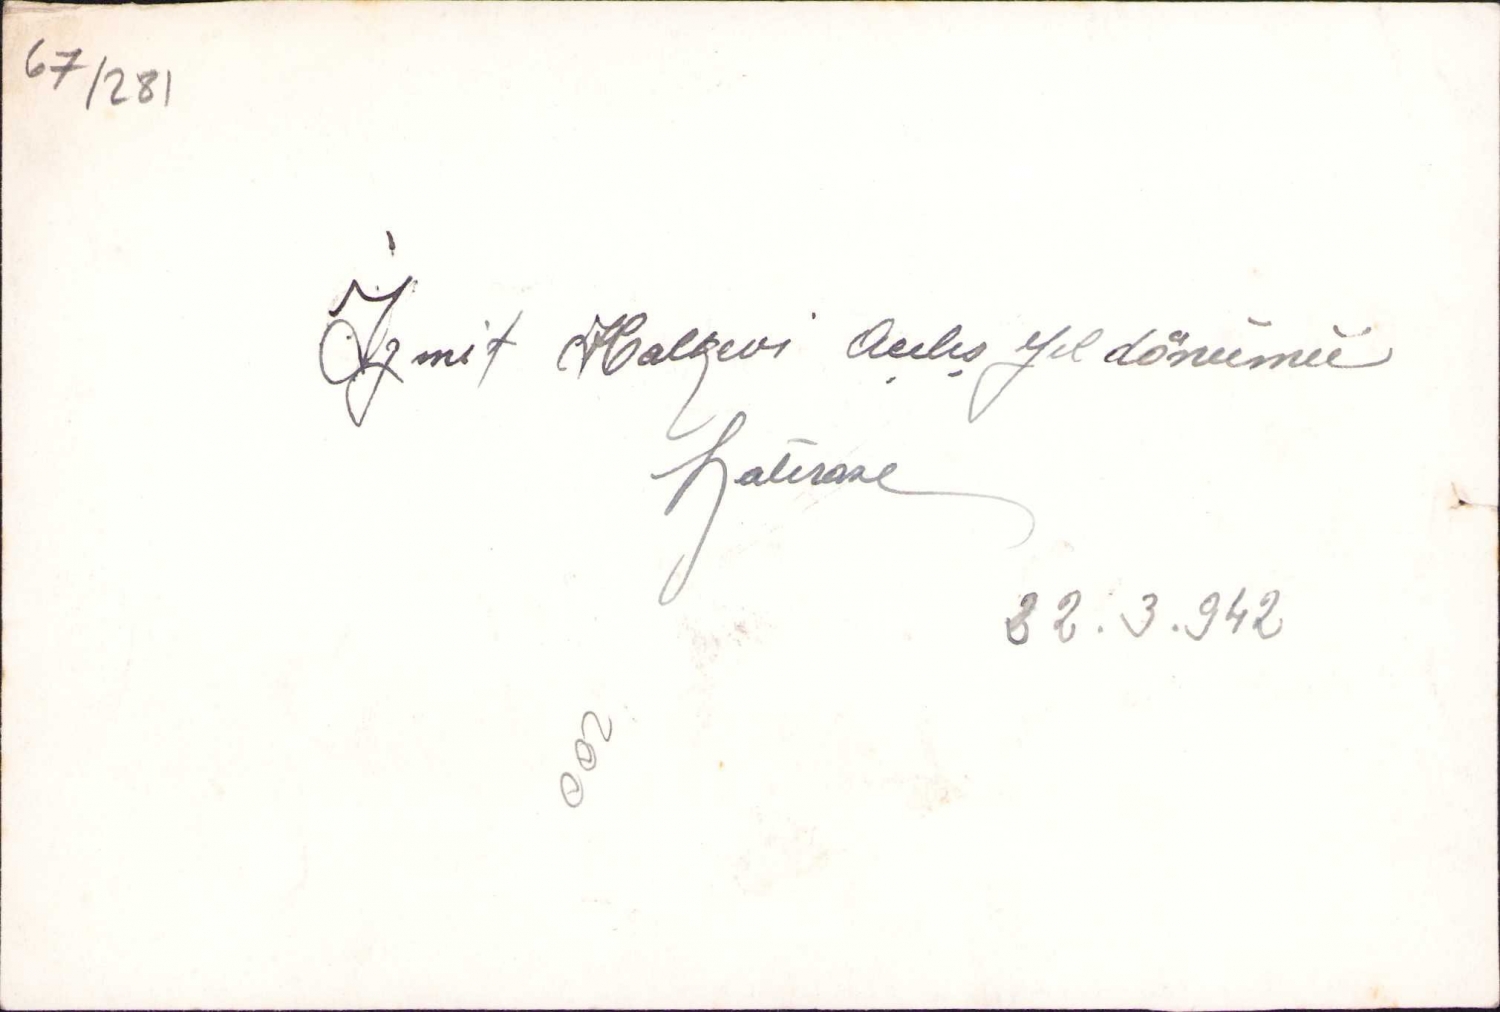 67/281
İzmit Halkevi Açılış Yıl dönümü
hatırası
22.3.942
200